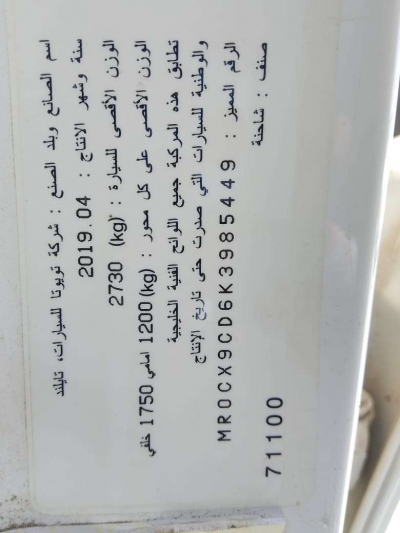 اسم الصانع وبلد الصنع : شركة تويوتا للسيارات، تايلند
سنة وشهر الانتاج : 2019.04
الوزن الأقصى للسيارة : 2730 (kg)
الوزن الأقصى على كل محور : 1200(kg) امامي 1750 خلفي
تطابق هذه المركبة جميع اللوائح الفنية الخليجية
والوطنية للسيارات التي صدرت حتى تاريخ الإنتاج
الرقم المميز : MR0CX9CD6K3985449
صنف : شاحنة
71100